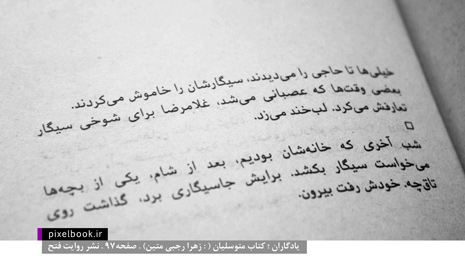 خیلی‌ها تا حاجی را می‌دیدند، سیگارشان را خاموش می‌کردند.
بعضی وقت‌ها که عصبانی می‌شد، غلامرضا برای شوخی سیگار
تعارفش می‌کرد. لب‌خند می‌زد.
شب آخری که خانه‌شان بودیم، بعد از شام، یکی از بچه‌ها
می‌خواست سیگار بکشد. برایش جاسیگاری برد، گذاشت روی
تاق‌چه. خودش رفت بیرون.
pixelbook.ir
یادگاران ؛ کتاب متوسلیان ( : زهرا رجبی متین) . صفحه ۹۷ . نشر روایت فتح